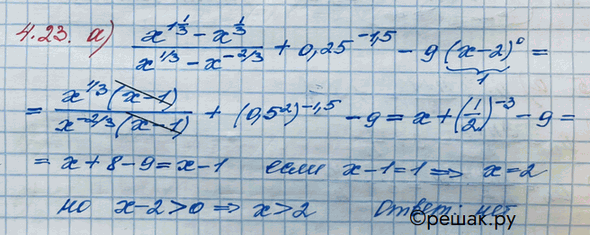 4.23. а) (x^{1 1/3} - x^{1/3}) / (x^{1/3} - x^{-2/3}) + 0,25^{-1,5} - 9 (x-2)^0 =
1
= (x^{1/3} (x-1)) / (x^{-2/3} (x-1)) + (0,5^2)^{-1,5} - 9 = x + (1/2)^{-3} - 9 =
= x + 8 - 9 = x - 1 если x - 1 = 1 => x = 2
но x - 2 > 0 => x > 2 ответ: нет
©решак.ру